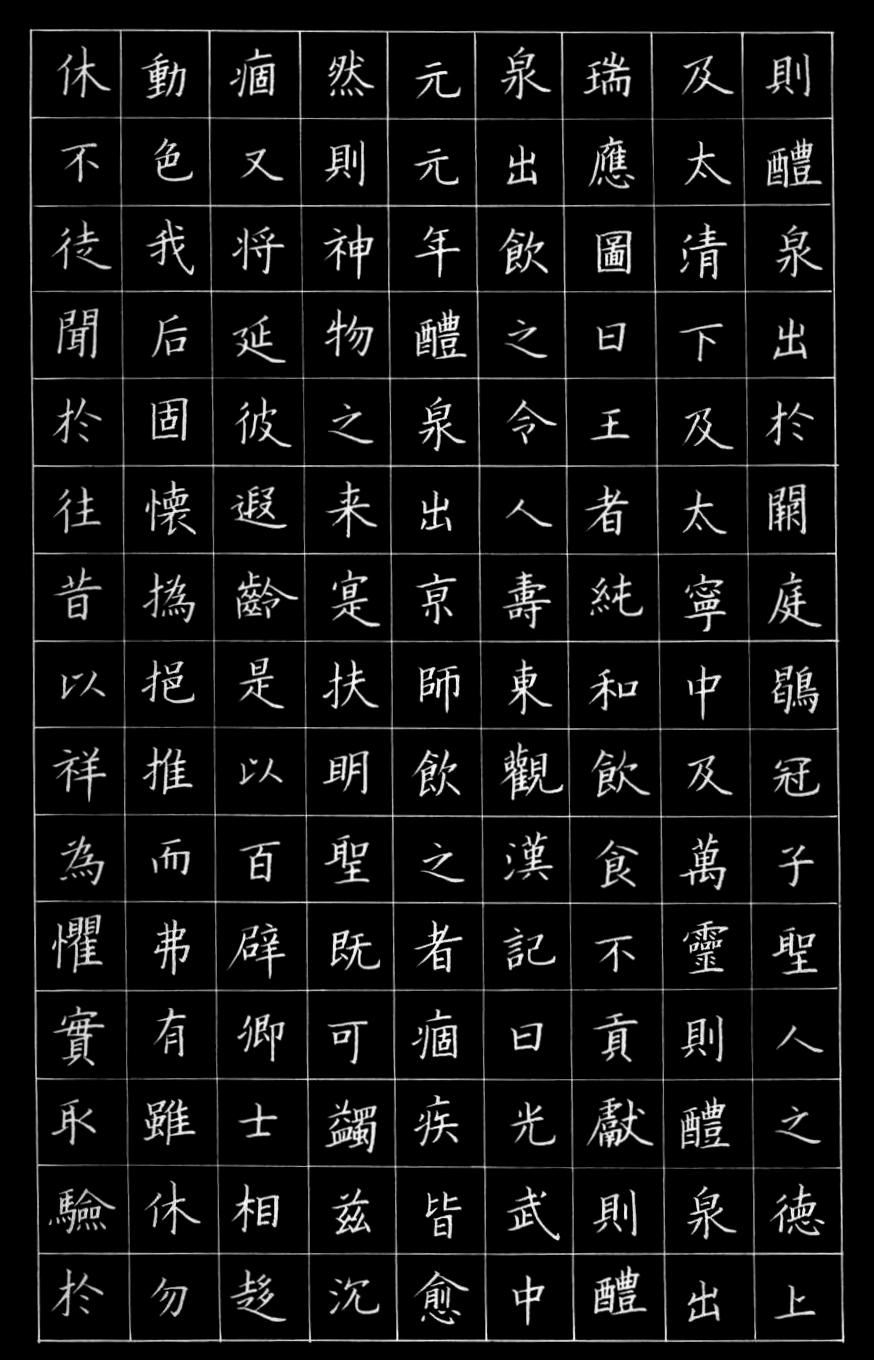 則醴泉出於闕庭鶡冠子聖人之德上
及太清下及太寧中及萬靈則醴泉出
瑞應圖曰王者純和飲食不貢獻則醴
泉出飲之令人壽東觀漢記曰光武中
元元年醴泉出亰師飲之者痼疾皆愈
然則神物之来寔扶明聖既可蠲兹沉
痼又将延彼遐齡是以百辟卿士相趍
動色我后固懐撝挹推而弗有雖休勿
休不徒聞於往昔以祥為懼實取驗於